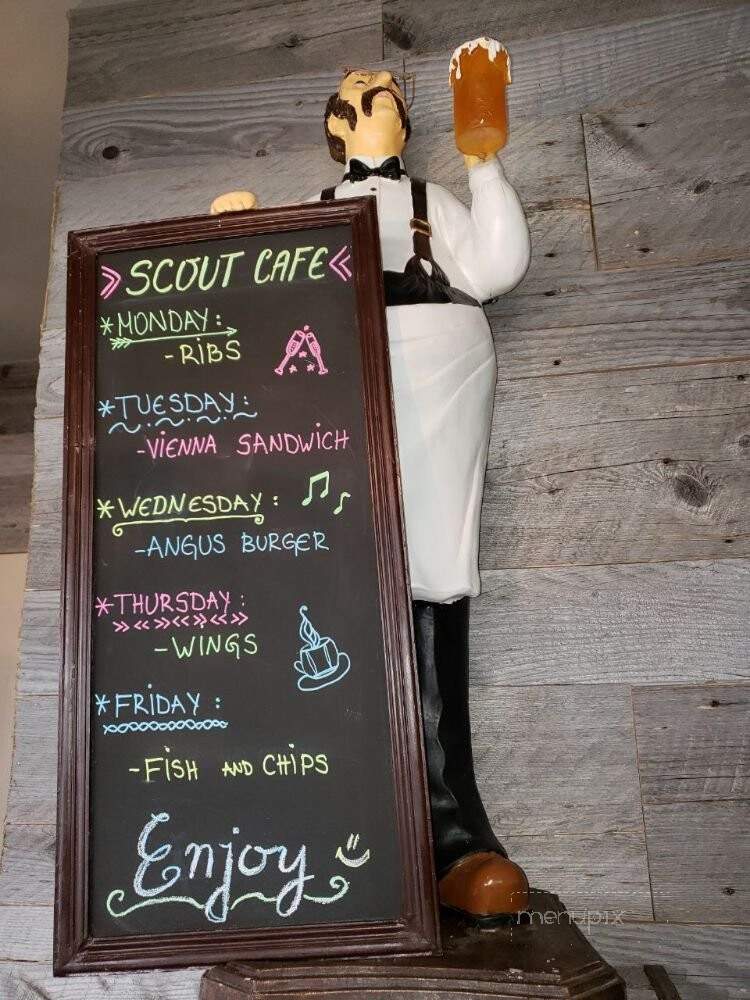 SCOUT CAFE
*MONDAY:
-RIBS
*TUESDAY:
-VIENNA SANDWICH
*WEDNESDAY:
-ANGUS BURGER
*THURSDAY:
-WINGS
*FRIDAY:
-FISH AND CHIPS
Enjoy
menupix